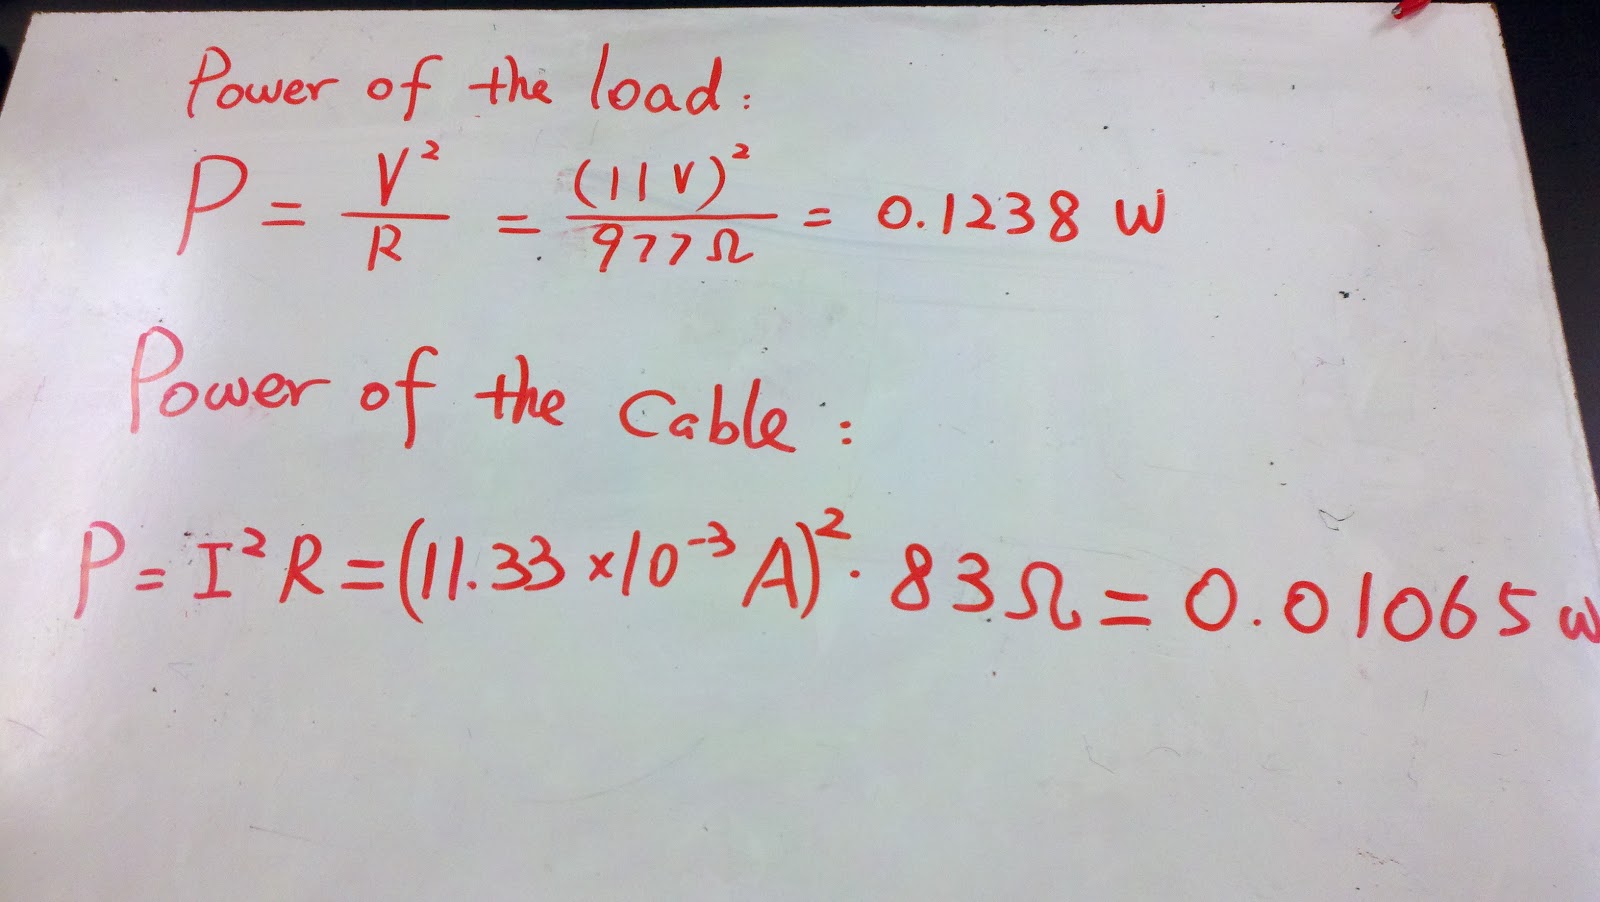 Power of the load:
P = V²/R = (11V)²/977Ω = 0.1238 W
Power of the Cable:
P = I²R = (11.33 ×10⁻³ A)² · 83Ω = 0.01065 W